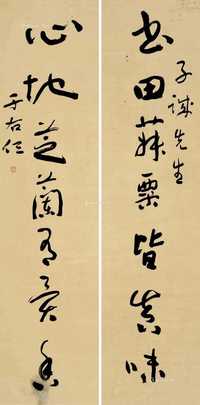 子诚先生
书田菽粟皆真味
心地芝兰有异香
于右任